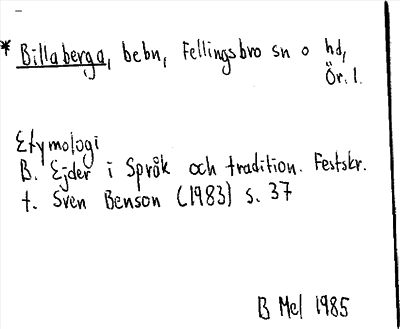 * Billaberga, bebn, Fellingsbro sn o hd,
Ör. l.
Etymologi
B. Ejder i Språk och tradition. Festskr.
t. Sven Benson (1983) s. 37
B Mel 1985